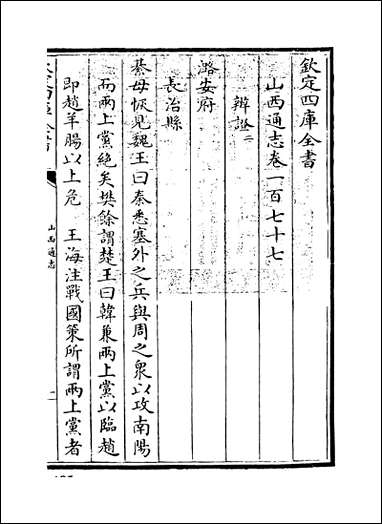 欽定四庫全書
山西通志卷一百七十七
辨證二
潞安府
長治縣
綦母恢見魏王曰秦悉塞外之兵與周之衆以攻南陽
而兩上黨絶矣樊餘謂楚王曰韓兼兩上黨以臨趙
即趙羊腸以上危　王海注戰國策所謂兩上黨者
山西通志